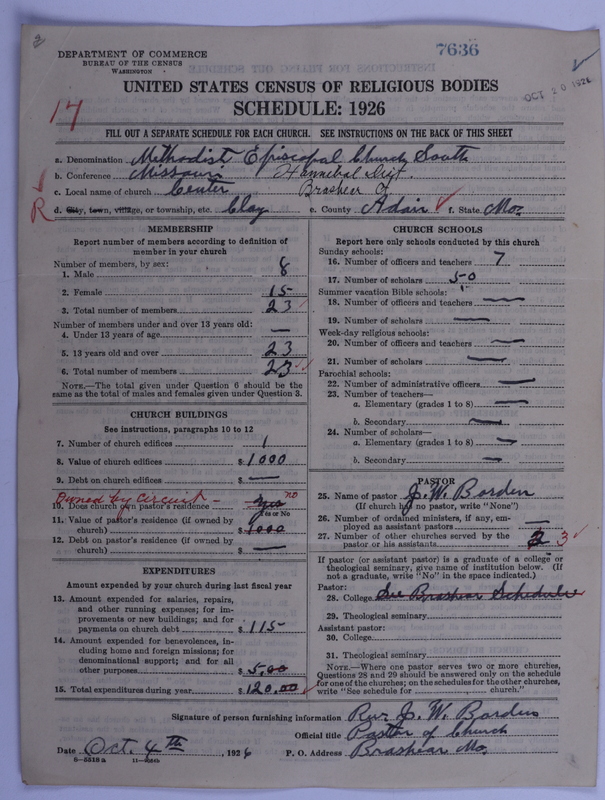 DEPARTMENT OF COMMERCE
BUREAU OF THE CENSUS
WASHINGTON
7636
OCT 20 1926
UNITED STATES CENSUS OF RELIGIOUS BODIES
SCHEDULE: 1926
17
FILL OUT A SEPARATE SCHEDULE FOR EACH CHURCH. SEE INSTRUCTIONS ON THE BACK OF THIS SHEET
a. Denomination Methodist Episcopal Church South
b. Conference Missouri Hannibal Dist.
c. Local name of church Center Brashear C
R d. City, town, village, or township, etc. Clay e. County Adair f. State Mo.
MEMBERSHIP
Report number of members according to definition of member in your church
Number of members, by sex:
1. Male 8
2. Female 15
3. Total number of members 23
Number of members under and over 13 years old:
4. Under 13 years of age —
5. 13 years old and over 23
6. Total number of members 23
NOTE.—The total given under Question 6 should be the same as the total of males and females given under Question 3.
CHURCH BUILDINGS
See instructions, paragraphs 10 to 12
7. Number of church edifices 1
8. Value of church edifices $ 1000
9. Debt on church edifices $ —
Owned by Circuit –
10. Does church own pastor's residence yes no
Yes or No
11. Value of pastor's residence (if owned by church) $ 1000
12. Debt on pastor's residence (if owned by church) $ —
EXPENDITURES
Amount expended by your church during last fiscal year
13. Amount expended for salaries, repairs, and other running expenses; for improvements or new buildings; and for payments on church debt $ 115
14. Amount expended for benevolences, including home and foreign missions; for denominational support; and for all other purposes $ 5.00
15. Total expenditures during year $ 120.00
CHURCH SCHOOLS
Report here only schools conducted by this church
Sunday schools:
16. Number of officers and teachers 7
17. Number of scholars 50
Summer vacation Bible schools:
18. Number of officers and teachers —
19. Number of scholars —
Week-day religious schools:
20. Number of officers and teachers —
21. Number of scholars —
Parochial schools:
22. Number of administrative officers —
23. Number of teachers—
a. Elementary (grades 1 to 8) —
b. Secondary —
24. Number of scholars—
a. Elementary (grades 1 to 8) —
b. Secondary —
PASTOR
25. Name of pastor J. W. Borden
(If church has no pastor, write "None")
26. Number of ordained ministers, if any, employed as assistant pastors —
27. Number of other churches served by the pastor or his assistants 3
If pastor (or assistant pastor) is a graduate of a college or theological seminary, give name of institution below. (If not a graduate, write "No" in the space indicated.)
Pastor:
28. College See Brashear Schedule
29. Theological seminary
Assistant pastor:
30. College
31. Theological seminary
NOTE.—Where one pastor serves two or more churches, Questions 28 and 29 should be answered only on the schedule for one of the churches; on the schedules for the other churches, write "See schedule for ______, ______ church."
Signature of person furnishing information Rev. J. W. Borden
Official title Pastor of Church
Date Oct. 4th, 1926 P. O. Address Brashear Mo.
6-5318 a